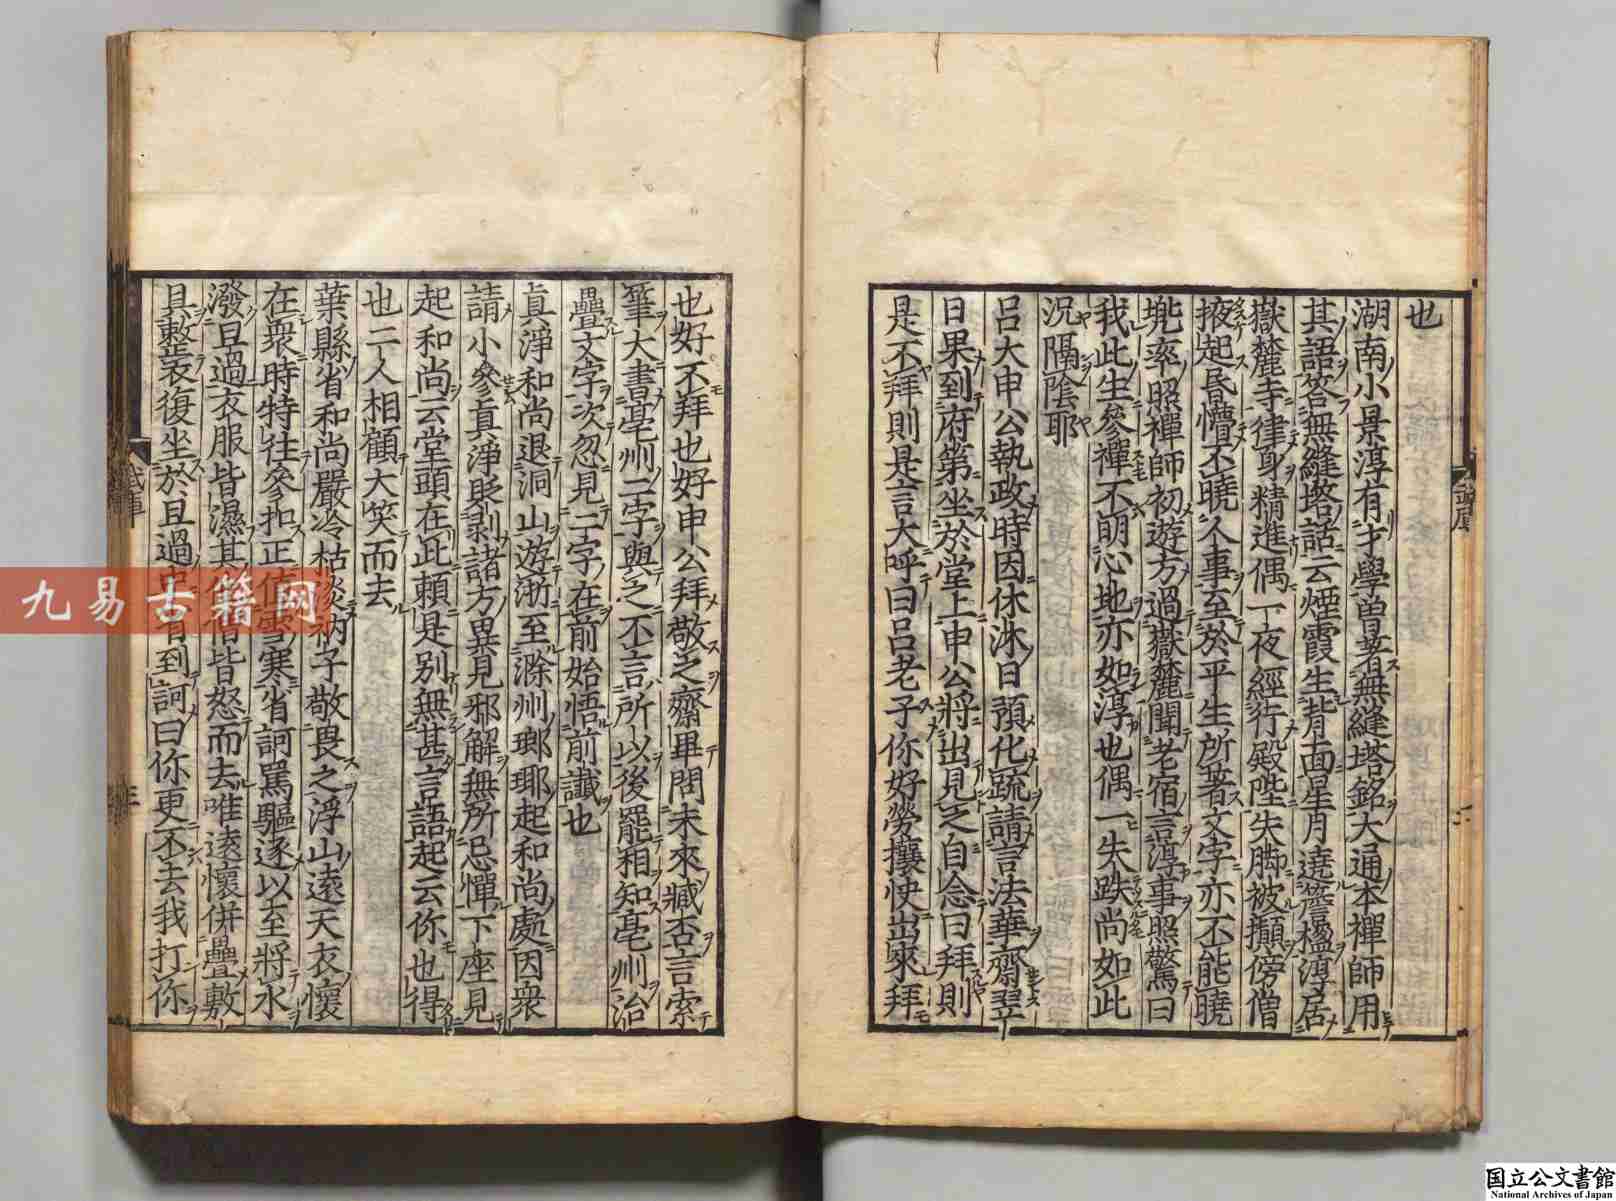 也
湖南小景淳有才學曽著無縫塔銘大通本禪師用
其語答無縫塔話云煙霞生背面星月遶簷楹淳居
嶽麓寺律身精進偶一夜經行殿陛失脚被攧傍僧
掖起昏懵不曉人事至於平生所著文字亦不能曉
兠率照禪師初遊方過嶽麓聞老宿言淳事照驚曰
我此生參禪不明心地亦如淳也偶一失跌尚如此
況隔陰耶
呂大申公執政時因休沐日預化疏請言法華齋翌
日果到府第坐於堂上申公將出見之自念曰拜則
是不拜則是言大呼曰呂老子你好勞攘快出來拜
也好不拜也好申公拜敬之齋畢問未來臧否言索
筆大書亳州二字與之不言所以後罷相知亳州治
疊文字次忽見二字在前始悟前讖也
真淨和尚退洞山游浙至滁州瑯琊起和尚處因衆
請小參真淨貶剥諸方異見邪解無所忌憚下座見
起和尚云堂頭在此頼是別無甚言語起云你也得
也二人相顧大笑而去
葉縣省和尚嚴冷枯淡衲子敬畏之浮山遠天衣懷
在衆時特往參扣正值雪寒省訶罵驅逐以至將水
潑旦過衣服皆濕其他僧皆怒而去唯遠懷併疊敷
具整衣復坐於旦過中省到訶曰你更不去我打你
武庫
二
武庫
三
九易古籍网
国立公文書館
National Archives of Japan